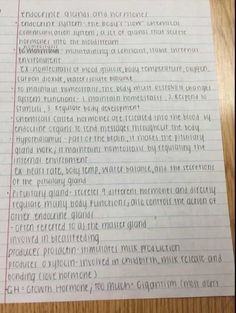 endocrine glands and hormones
· endocrine system - the body's "slow" chemical
communication system; a set of glands that secrete
hormones into the bloodstream
homeostasis - maintaining a constant, stable internal
environment
ex. homeostasis of blood glucose, body temperature, oxygen,
carbon dioxide, water/fluid balance
to maintain homeostasis, the body must establish changes
system functions - 1. maintain homeostasis, 2. respond to
stimuli, 3. regulate body development
chemicals called hormones are released into the blood by
endocrine organs to send messages throughout the body
Hypothalamus - part of the brain, it makes the pituitary
gland work, it maintains homeostasis by regulating the
internal environment
ex. heart rate, body temp, water balance, and the secretions
of the pituitary gland
· Pituitary gland - secretes 9 different hormones and directly
regulate many body functions, and controls the action of
other endocrine glands
- often referred to as the master gland
involved in breastfeeding
produces prolactin - stimulates milk production
produces oxytocin - involved in childbirth, milk release and
bonding (love hormone)
GH - Growth Hormone, too much = Gigantism (most don't